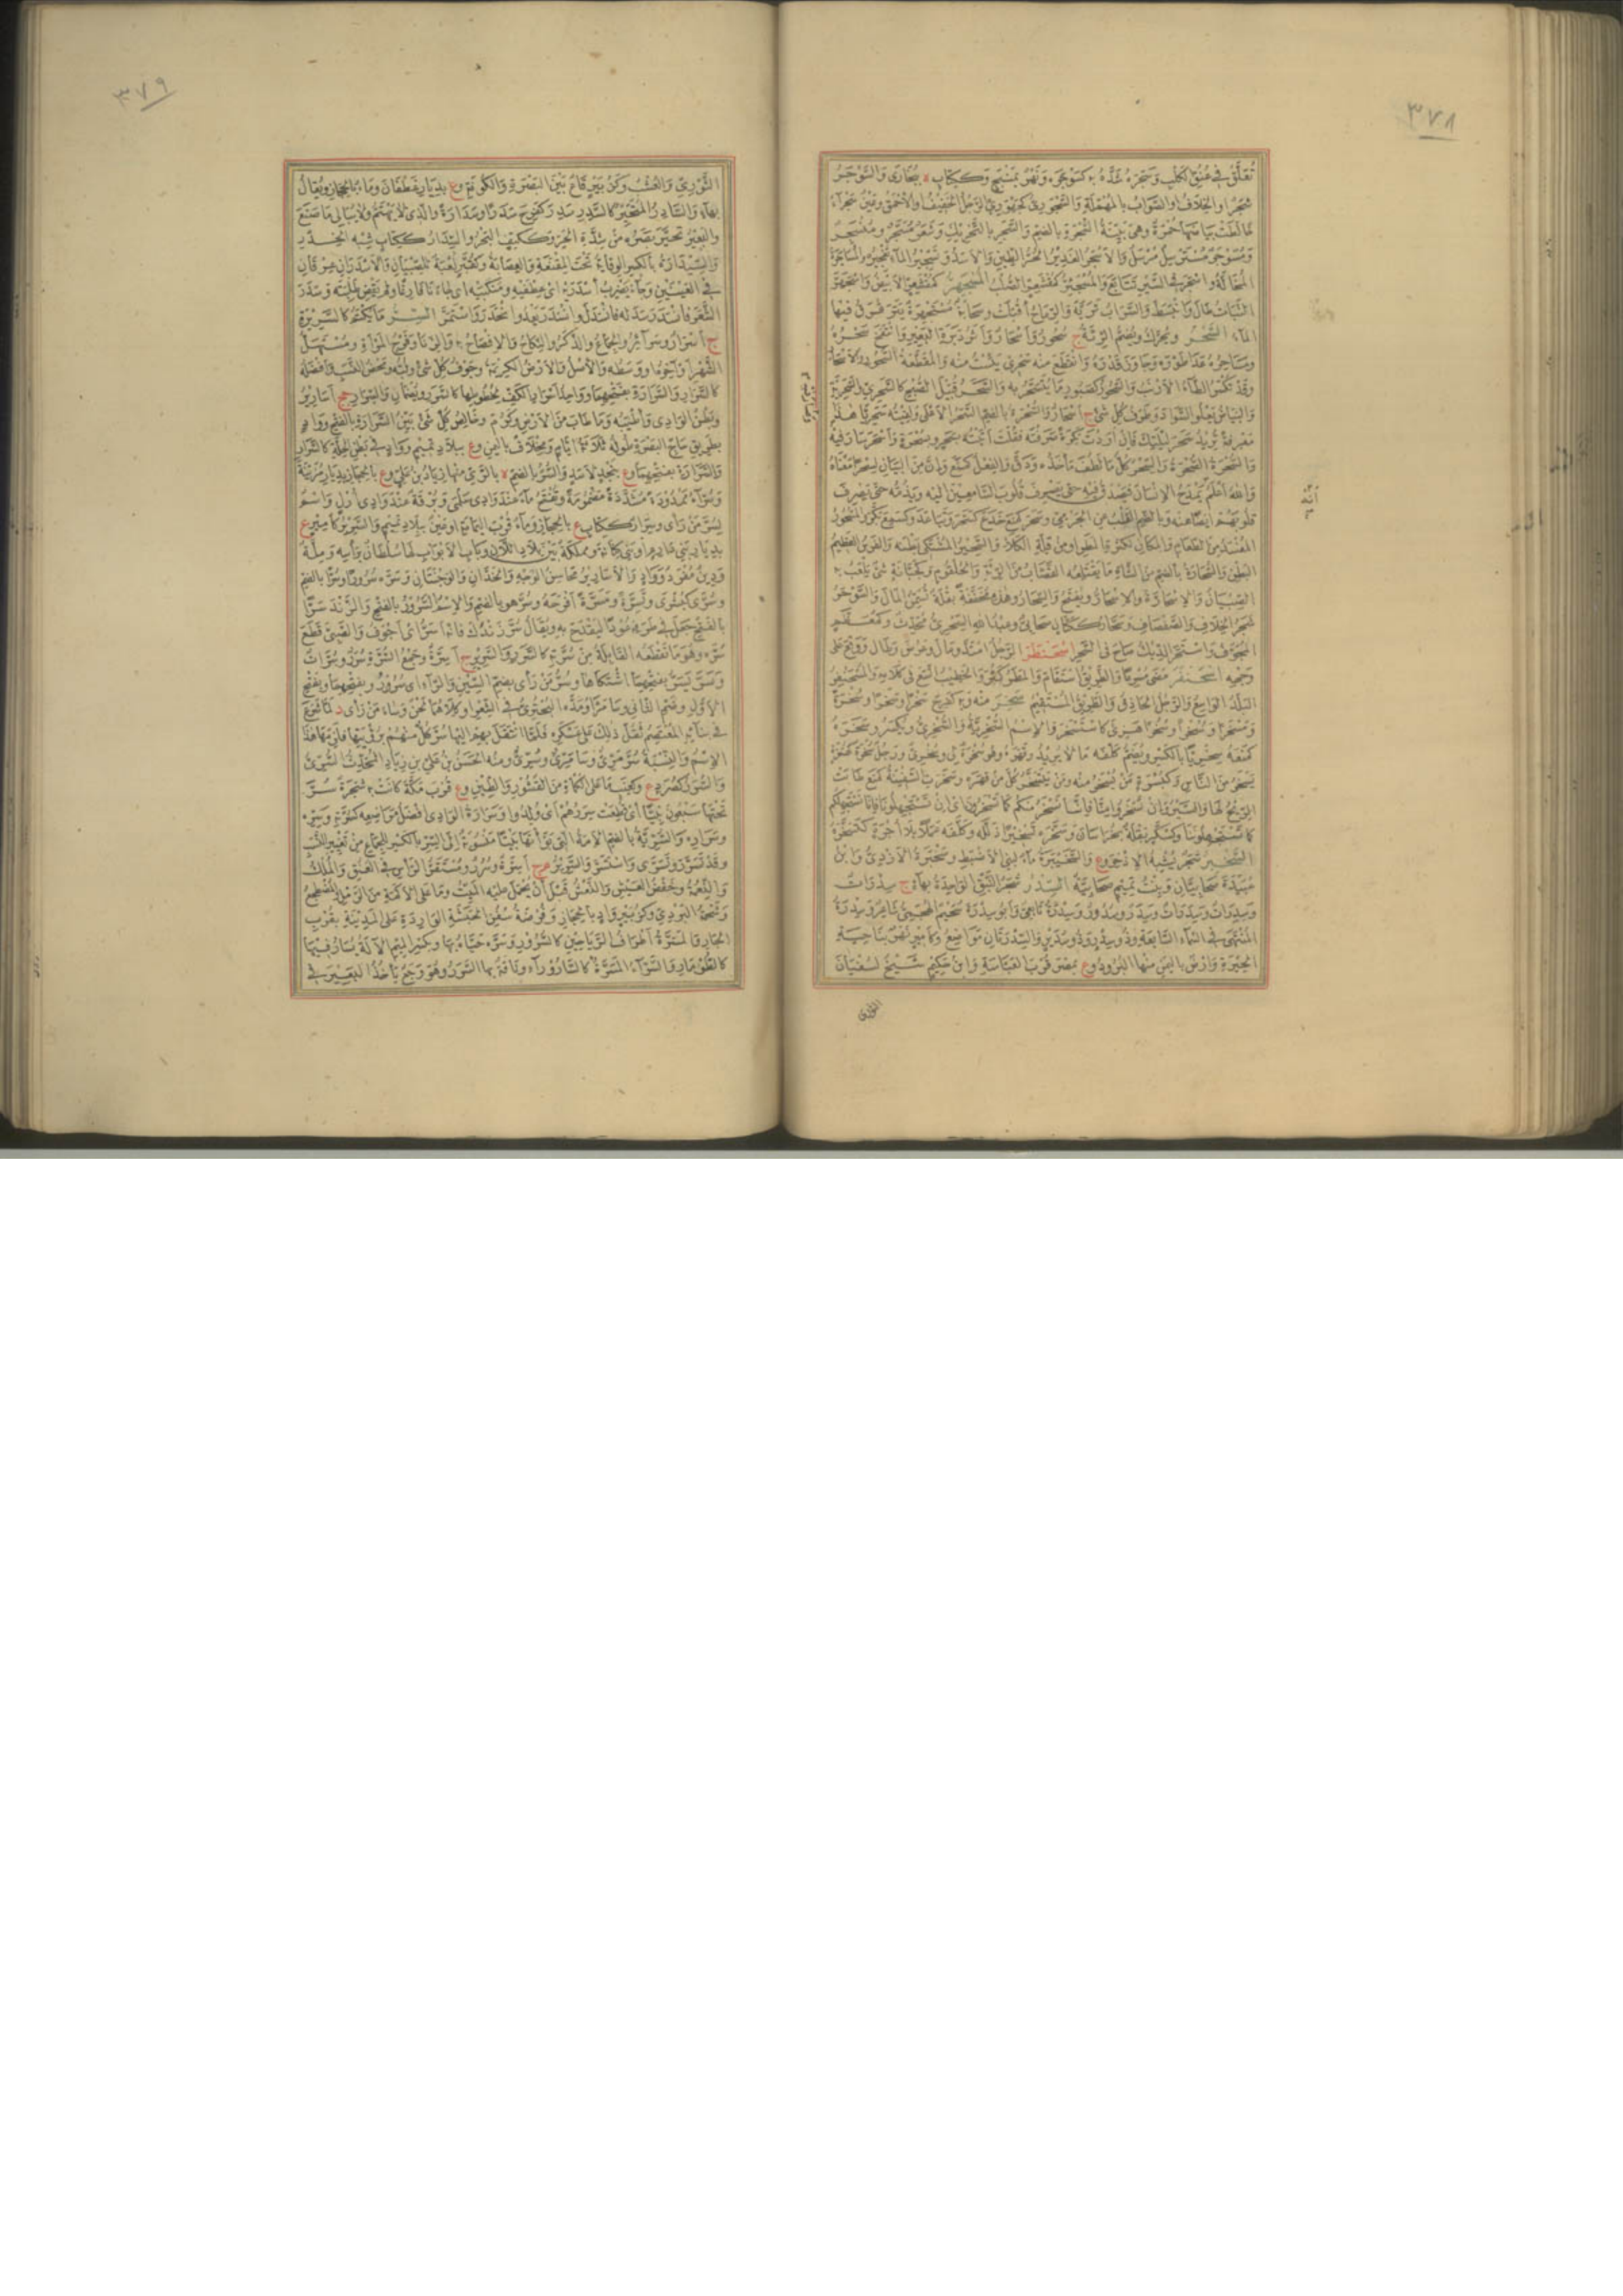 ٣٧٨
تُعَلَّقُ فى عُنُقِ الكَلْبِ وَسَجَرَهُ شَدَّهُ به كسَوْجَرَهُ وَنَهْرٌ بِمَنْبِجَ وَككِتَابٍ ة بِبُخَارَى وَالسَّوْجَرُ
شَجَرٌ اَو الخِلَافُ او الصَّوَابُ بالمُهْمَلَةِ وَالسَّجْوَرِىُّ كجَهْوَرِىٍّ الرَّجُلُ الخَفِيفُ او الأحْمَقُ وعَيْنٌ سَجْرَآءُ
خَالَطَتْ بَيَاضَهَا حُمْرَةٌ وهى بَيِّنَةُ السُّجْرَةِ بالضم والسَّجَرِ بالتَّحْرِيكِ وشَعَرٌ مُنْسَجِرٌ
وَمُسَوْجَرٌ مُسْتَرْسِلٌ مُرْسَلٌ وَالأَسْجَرُ الغَدِيرُ الحُرُّ الطِّينِ وَالأَسَدُ وتَسْجِيرُ المَآءِ تَفْجِيرُهُ وَالمُسَاجَرَةُ
المُخَالَّةُ وانْسَجَرَتْ فى السَّيْرِ تَتَابَعَتْ والمُسْجَهِرُّ كمُقْشَعِرٍّ الصُّلْبُ المُسْجَهِرُّ كمُقْشَعِرٍّ الأبْيَضُ وَاسْجَهَرَّ
النَّبَاتُ طَالَ وَانْبَسَطَ وَالسَّرَابُ تَرَيَّهَ وَالرِّمَاحُ اَقْبَلَتْ وسَحَابَةٌ مُسْجَهِرَّةٌ يَتَرَقْرَقُ فيها
المآءُ السَّحْرُ ويُحَرَّكُ ويُضَمُّ الرِّئَةُ ج سُحُورٌ وَاَسْحَارٌ وَاَثَرُ دَبَرَةِ البَعِيرِ وَانْتَفَخَ سَحْرُهُ
ومَسَاحِرُهُ عَدَا طَوْرَهُ وَجَاوَزَ قَدْرَهُ وَانْقَطَعَ مِنه سَحْرِى يَئِسْتُ مِنه وَالمُقَطَّعَةُ السُّحُورِ والاسْحَارِ
وقَدْ تُكْسَرُ الطَّآءُ الأَرْنَبُ وَالسَّحُورُ كصَبُورٍ مَا يُتَسَحَّرُ بِه وَالسَّحَرُ قُبَيْلَ الصُّبْحِ كالسَّحَرِىِّ والسَّحَرِيَّةِ
وَالبَيَاضُ يَعْلُو السَّوَادَ وَطَرَفُ كُلِّ شَىْءٍ ج اَسْحَارٌ وَالسُّحْرَةُ بالضم السَّحَرُ الأَعْلَى وَلَقِيتُهُ سَحَرَ يَا هٰذَا
مَعْرِفَةً تُرِيدُ سَحَرَ لَيْلَتِكَ فَاِنْ اَرَدْتَ نَكِرَةً صَرَفْتَهُ فَقُلْتَ اَتَيْتُهُ بِسَحَرٍ وبِسُحْرَةٍ وَاَسْحَرَ سَارَ فيهِ
وَالسُّحْرَةُ السُّحْرَةُ وَالسِّحْرُ كُلُّ مَا لَطُفَ مَأْخَذُهُ وَدَقَّ وَالفِعْلُ كمَنَعَ وَاِنَّ مِنَ البَيَانِ لَسِحْرًا مَعْنَاهُ
وَاللهُ اَعْلَمُ يَمْدَحُ الاِنْسَانَ فَيَصْدُقُ فيهِ حَتّى يَصْرِفَ قُلُوبَ السَّامِعِينَ اليْهِ وَيَذُمُّهُ حَتّى يَصْرِفَ
قُلُوبَهُمْ اَيْضًا عنه وبالضم القَلْبُ عَن الجَرْمِىِّ وسَحَرَ كمَنَعَ خَدَعَ كسَحَّرَ وتَبَاعَدَ وكسَمِعَ بَكَّرَ والمَسْحُورُ
المُفْسَدُ مِنَ الطَّعَامِ وَالمَكَانِ لكَثْرَةِ المَطَرِ او مِن قِلَّةِ الكَلَأِ وَالسَّحِيرُ المُشْتَكِى بَطْنَهُ وَالفَرَسُ العَظِيمُ
البَطْنِ وَالسُّحَارَةُ بالضم مِنَ الشَّاةِ مَا يَقْتَلِعُهُ القَصَّابُ مِنَ الرِّئَةِ وَالحُلْقُومِ وكجَبَّانَةٍ شَىْءٌ يَلْعَبُ به
الصِّبْيَانُ وَالاِسْحَارَّةُ والاِسْحَارُّ ويُفْتَحُ والسِّحَارُ وهٰذِه مُخَفَّفَةٌ بَقْلَةٌ تُسَمِّنُ المَالَ وَالسَّوْحَرُ
شَجَرُ الخِلَافِ والصَّفْصَافِ وسَحَّارٌ ككَتَّانٍ صَحَابِىٌّ وعَبْدُ اللهِ السِّحْرِىُّ مُحَدِّثٌ وكمُعَظَّمٍ
المُجَوَّفُ وَاسْتَحَرَ الدِّيكُ صَاحَ فى السَّحَرِ اسْحَنْطَرَ الرَّجُلُ امْتَدَّ وَمَالَ وَعَرُضَ وَطَالَ ووَقَعَ عَلَى
وَجْهِهِ اسْحَنْفَرَ مَضَى مُسْرِعًا وَالطَّرِيقُ اسْتَقَامَ وَالمَطَرُ كَثُرَ وَالخَطِيبُ اتَّسَعَ فى كَلَامِهِ وَالمُسْحَنْفِرُ
البَلَدُ الوَاسِعُ وَالرَّجُلُ الحَاذِقُ وَالطَّرِيقُ المُسْتَقِيمُ سَخِرَ مِنْهُ وبه كفَرِحَ سَخْرًا وسَخَرًا وسُخْرَةً
وَمَسْخَرًا وَسُخْرًا وسُخُرًا هَزِئَ كاسْتَسْخَرَ وَالاِسْمُ السُّخْرِيَّةُ وَالسُّخْرِىُّ ويُكْسَرُ وسَخَرَهُ
كمَنَعَهُ سِخْرِيًّا بالكسر ويُضَمُّ كَلَّفَهُ مَا لَا يُرِيدُ وقَهَرَهُ وهو سُخْرَةٌ لِى وسُخْرِىٌّ ورَجُلٌ سُخَرَةٌ كهُمَزَةٍ
يَسْخَرُ مِنَ النَّاسِ وكبُسْرَةٍ مَنْ يُسْخَرُ مِنه ومَنْ يُتَسَخَّرُ كُلُّ مَنْ قَهَرَهُ وسَخَرَتِ السَّفِينَةُ كمَنَعَ طَابَتْ
الرِّيحُ لَهَا وَالسَّيْرُ فَاِنْ تَسْخَرُوا مِنَّا فَاِنَّا نَسْخَرُ مِنكم كَمَا تَسْخَرُونَ اَىْ اِنْ تَسْتَجْهِلُونَا فَاِنَّا نَسْتَجْهِلُكُمْ
كَمَا تَسْتَجْهِلُونَنَا وكسُكَّرٍ بَقْلَةٌ بخُرَاسَانَ وسَخَّرَهُ تَسْخِيرًا ذَلَّلَهُ وكَلَّفَهُ عَمَلًا بِلَا اُجْرَةٍ كتَسَخَّرَهُ
السَّخْبَرُ شَجَرٌ يُشْبِهُ الاِذْخِرَ وع وَالسَّخْبَرَةُ مَآءٌ لِبَنِى الأَضْبَطِ وسَخْبَرَةُ الأَزْدِىُّ وَابْنُ
عُبَيْدَةَ صَحَابِيَّانِ وبِنْتُ تَمِيمٍ صَحَابِيَّةٌ السِّدْرُ شَجَرُ النَّبْقِ الوَاحِدَةُ بهآءٍ ج سِدْرَاتٌ
وسِدِرَاتٌ وسِدَرَاتٌ وسِدَرٌ وسُدُورٌ وسِدْرَةُ تَابِعِىٌّ وَاَبُو سِدْرَةَ سُحَيْمٌ الهُجَيْمِىُّ شَاعِرٌ وسِدْرَةُ
المُنْتَهَى فى السَّمَآءِ السَّابِعَةِ وذُو سِدْرٍ وذُو سُدَيْرٍ وَالسِّدْرَتَانِ مَوَاضِعُ وكاَمِيرٍ نَهْرٌ بِنَاحِيَةِ
الحِيرَةِ وَاَرْضٌ باليَمَنِ مِنهَا البُرُودُ وع بمِصْرَ قُرْبَ العَبَّاسَةِ وَابْنُ حَكِيمٍ شَيْخٌ لِسُفْيَانَ
الثورى
٣٧٩
الثَّوْرِىِّ وَالعُشْبُ وكزُبَيْرٍ قَاعٌ بَيْنَ البَصْرَةِ وَالكُوفَةِ وع بِدِيَارِ غَطَفَانَ ومَآءٌ بالحِجَازِ ويُقَالُ
بهآءٍ وَالسَّادِرُ المُتَحَيِّرُ كالسَّدِرِ سَدِرَ كفَرِحَ سَدَرًا وسَدَارَةً وَالَّذِى لَا يَهْتَمُّ ولَا يُبَالِى مَا صَنَعَ
والبَعِيرُ تَحَيَّرَ بَصَرُهُ مِن شِدَّةِ الحَرِّ وككَتِفٍ البَحْرُ والسِّدَارُ ككِتَابٍ شِبْهُ الخِدْرِ
وَالسِّيدَارَةُ بالكسر الوِقَايَةُ تَحْتَ المِقْنَعَةِ والعِصَابَةُ وكقُبَّرٍ لُعْبَةٌ للصِّبْيَانِ وَالأَسْدَرَانِ عِرْقَانِ
فى العَيْنَيْنِ وجَآءَ يَضْرِبُ اَسْدَرَيْهِ اى عِطْفَيْهِ ومَنْكِبَيْهِ اى جَآءَ فَارِغًا ولم يَقْضِ طَلِبَتَهُ وسَدَرَ
الشَّعَرَ فَانْسَدَرَ سَدَلَهُ فَانْسَدَلَ وانْسَدَرَ يَعْدُو انْحَدَرَ وَاسْتَمَرَّ السِّرُّ مَا يُكْتَمُ كالسَّرِيرَةِ
ج اَسْرَارٌ وسَرَآئِرُ والجِمَاعُ والذَّكَرُ والنِّكَاحُ وَالاِفْصَاحُ به وَالزِّنَا وفَرْجُ المَرْأَةِ ومُسْتَهَلُّ
الشَّهْرِ اَو آخِرُهُ او وَسَطُهُ وَالأَصْلُ وَالأَرْضُ الكَرِيمَةُ وجَوْفُ كُلِّ شَىْءٍ ولُبُّهُ ومَحْضُ النَّسَبِ وَاَفْضَلُهُ
كالسَّرَارِ وَالسَّرَارَةِ بفَتْحِهِمَا ووَاحِدُ اَسْرَارِ الكَفِّ لِخُطُوطِهَا كالسَّرَرِ ويُضَمَّانِ وَالسِّرَارِ جج اَسَارِيرُ
وبَطْنُ الوَادِى وَاَطْيَبُهُ وَمَا طَابَ مِنَ الأَرْضِ وكَرُمَ وخَالِصُ كُلِّ شَىْءٍ بَيِّنُ السَّرَارَةِ بالفتح ووَادٍ
بطَرِيقِ حَاجِّ البَصْرَةِ طُولُهُ ثَلَاثَةُ اَيَّامٍ ومِخْلَافٌ باليَمَنِ وع بِبِلَادِ تَمِيمٍ ووَادٍ فى بَطْنِ الحِلَّةِ كالسَّرَارِ
وَالسَّرَارَةِ بفتحِهما وع بنَجْدٍ لأَسَدٍ وَالسُّرُّ بالضم ة بالرَّىِّ مِنْهَا زِيَادُ بْنُ عَلِىٍّ وع بالحِجَازِ بِدِيَارِ مُزَيْنَةَ
وسُرَّآءُ مَمْدُودَةً مُشَدَّدَةً مَضْمُومَةً وتُفْتَحُ مَآءٌ عِنْدَ وَادِى سَلْمَى وبُرْقَةٌ عِنْدَ وَادِى اُرُلٍ وَاسْمٌ
لِسُرَّ مَنْ رَأَى وسِرَارٌ ككِتَابٍ ع بالحِجَازِ ومَآءٌ قُرْبَ اليَمَامَةِ او عَيْنٌ بِبِلَادِ تَمِيمٍ وَالسَّرِيرُ كاَمِيرٍ ع
بِدِيَارِ بَنِى دَارِمٍ او بَنِى كِنَانَةَ ومَمْلَكَةٌ بَيْنَ بِلَادِ اللَّانِ وَبَابِ الأَبْوَابِ لَهَا سُلْطَانٌ بِرَأْسِهِ ومِلَّةٌ
ودِينٌ مُفْرَدٌ ووَادٍ وَالأَسَارِيرُ مَحَاسِنُ الوَجْهِ وَالخَدَّانِ وَالوَجْنَتَانِ وسَرَّهُ سُرُورًا وسُرًّا بالضم
وسُرَّى كبُشْرَى وتَسِرَّةً ومَسَرَّةً اَفْرَحَهُ وسُرَّ هو بالضم وَالاِسْمُ السَّرُورُ بالفتح وَالزَّنْدَ سَرًّا
بالفتح جَعَلَ فى طَرَفِهِ عُودًا لِيَقْدَحَ بِهِ ويُقَالُ سُرَّ زَنْدَكَ فَاِنَّهُ اَسَرُّ اى اَجْوَفُ وَالصَّبِىَّ قَطَعَ
سُرَّهُ وهُوَ مَا تَقْطَعُهُ القَابِلَةُ مِن سُرَّتِهِ كالسَّرَرِ وَالسِّرَرِ ج اَسِرَّةٌ وجَمْعُ السُّرَّةِ سُرَرٌ وسُرَّاتٌ
وسَرَّ يَسَرُّ بفتحِهما اشْتَكَاهَا وسُرَّ مَنْ رَأَى بضم السِّينِ والرَّآءِ اى سُرُورٌ وبفتحِهما وبفَتْحِ
الأَوَّلِ وضَمِّ الثَّانِى وسَامَرَّا ومَدَّهُ البُحْتُرِىُّ فى الشِّعْرِ او كِلَاهُمَا لَحْنٌ وسَاءَ مَنْ رَأَى د لَمَّا شَرَعَ
فى بِنَآئِهِ المُعْتَصِمُ ثَقُلَ ذٰلِكَ عَلَى عَسْكَرِهِ فَلَمَّا انْتَقَلَ بِهِمْ اِلَيْهَا سُرَّ كُلٌّ مِنْهُمْ بِرُؤْيَتِهَا فَلَزِمَهَا هٰذَا
الاِسْمُ وَالنِّسْبَةُ سُرَّمَرِّىٌّ وسَامَرِّىٌّ وسُرِّىٌّ ومِنْهُ الحَسَنُ بْنُ عَلِىِّ بْنِ زِيَادٍ المُحَدِّثُ السُّرِّىُّ
وَالسُّرَرُ كصُرَدٍ ع وكعِنَبٍ مَا عَلَى الكَمْأَةِ مِنَ القُشُورِ وَالطِّينِ وع قُرْبَ مَكَّةَ كَانَتْ بِه شَجَرَةٌ سُرَّ
تَحْتَهَا سَبْعُونَ نَبِيًّا اَىْ قُطِعَتْ سُرَرُهُمْ اَىْ وُلِدُوا وسَرَارَةُ الوَادِى اَفْضَلُ مَوَاضِعِهِ كسُرَّتِهِ وسِرِّهِ
وسَرَارِهِ وَالسُّرِّيَّةُ بالضم الأَمَةُ الَّتِى بَوَّأْتَهَا بَيْتًا مَنْسُوبَةٌ اِلَى السِّرِّ بالكسر للجِمَاعِ مِن تَغْيِيرِ النَّسَبِ
وقَدْ تَسَرَّرَ وتَسَرَّى وَاسْتَسَرَّ وَالسَّرِيرُ م ج اَسِرَّةٌ وسُرُرٌ ومُسْتَقَرُّ الرَّأْسِ فى العُنُقِ وَالمُلْكُ
وَالنِّعْمَةُ وخَفْضُ العَيْشِ وَالنَّعْشُ قَبْلَ اَنْ يُحْمَلَ عَلَيْهِ المَيِّتُ ومَا عَلَى الأَكَمَةِ مِنَ الرَّمْلِ والمُضْطَجَعُ
وشَحْمَةُ البَرْدِىِّ وكزُبَيْرٍ وَادٍ بالحِجَازِ وفُرْضَةُ سُفُنِ الحَبَشَةِ الوَارِدَةِ عَلَى المَدِينَةِ بِقُرْبِ
الجَارِ وَالمَسَرَّةُ اَطْرَافُ الرَّيَاحِينِ كالسُّرُورِ وسَرَّهُ حَيَّاهُ بِهَا وبكَسْرِ المِيمِ الآلَةُ يُسَارُّ فِيهَا
كالطُّومَارِ وَالسَّرَّآءُ المَسَرَّةُ كالسَّارُورَآءِ ونَاقَةٌ بِهَا السَّرَرُ وهُوَ وَجَعٌ يَأْخُذُ البَعِيرَ فى